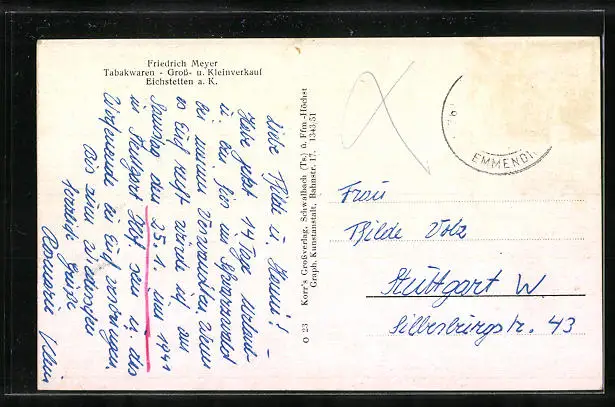 Friedrich Meyer
Tabakwaren - Groß- u. Kleinverkauf
Eichstetten a. K.
Liebe Hilde u. Hansi! -
Habe jetzt 14 Tage Urlaub
u. bin hier im Schwarzwald
bei meinen Verwandten. Wenn
es Euch recht würde ich am
Samstag den 25.1. um 1941
in Stuttgart Hbf sein u. das
Wochenende bei Euch verbringen.
Bis zum Wiedersehen
herzliche Grüße
Rosmarie
O 23 Korr's Großverlag, Schwalbach (Ts.) ü. Ffm.-Höchst
Graph. Kunstanstalt, Bahnstr. 17. 1343/51
EMMENDI
Frau
Hilde Volz
Stuttgart W
Silberburgstr. 43